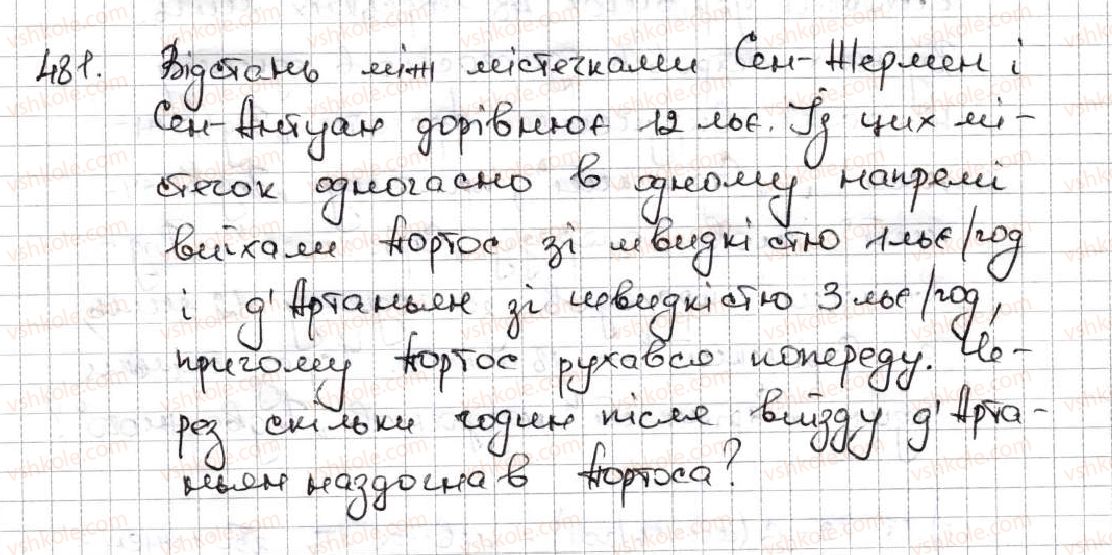 481. Відстань між містечками Сен-Жермен і
Сен-Антуан дорівнює 12 льє. Із цих мі-
стечок одночасно в одному напрямі
виїхали Портос зі швидкістю 1 льє/год
і д'Артаньян зі швидкістю 3 льє/год,
причому Портос рухався попереду. Че-
рез скільки годин після виїзду д'Арта-
ньян наздогнав Портоса?